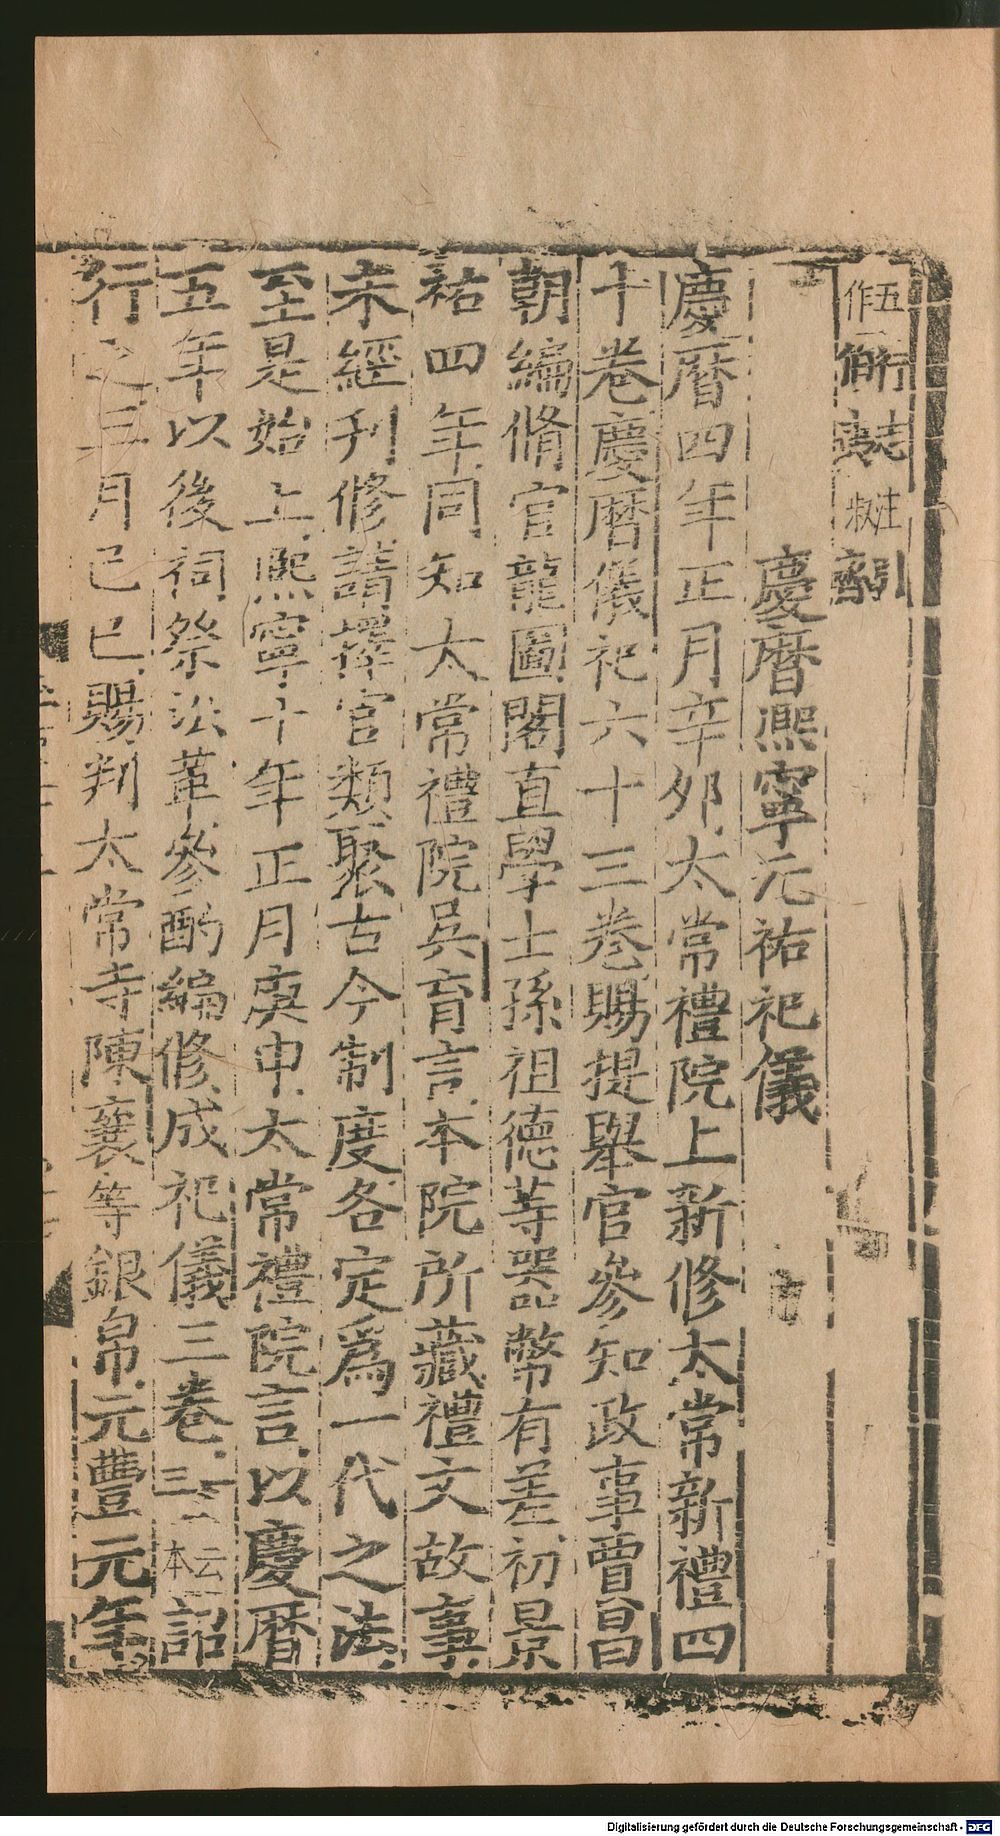 五行志注引
作脩
慶曆熙寧元祐祀儀
慶曆四年正月辛夘太常禮院上新修太常新禮四
十卷慶曆儀祀六十三卷賜提舉官參知政事賈昌
朝編脩官龍圖閣直學士孫祖德等器幣有差初景
祐四年同知太常禮院吳育言本院所藏禮文故事
未經刊修請擇官類聚古今制度各定爲一代之法
至是始上熙寧十年正月庚申太常禮院言以慶曆
五年以後祠祭沿革參酌編修成祀儀三卷一云三本詔
行之三月己巳賜判太常寺陳襄等銀帛元豐元年
Digitalisierung gefördert durch die Deutsche Forschungsgemeinschaft - DFG